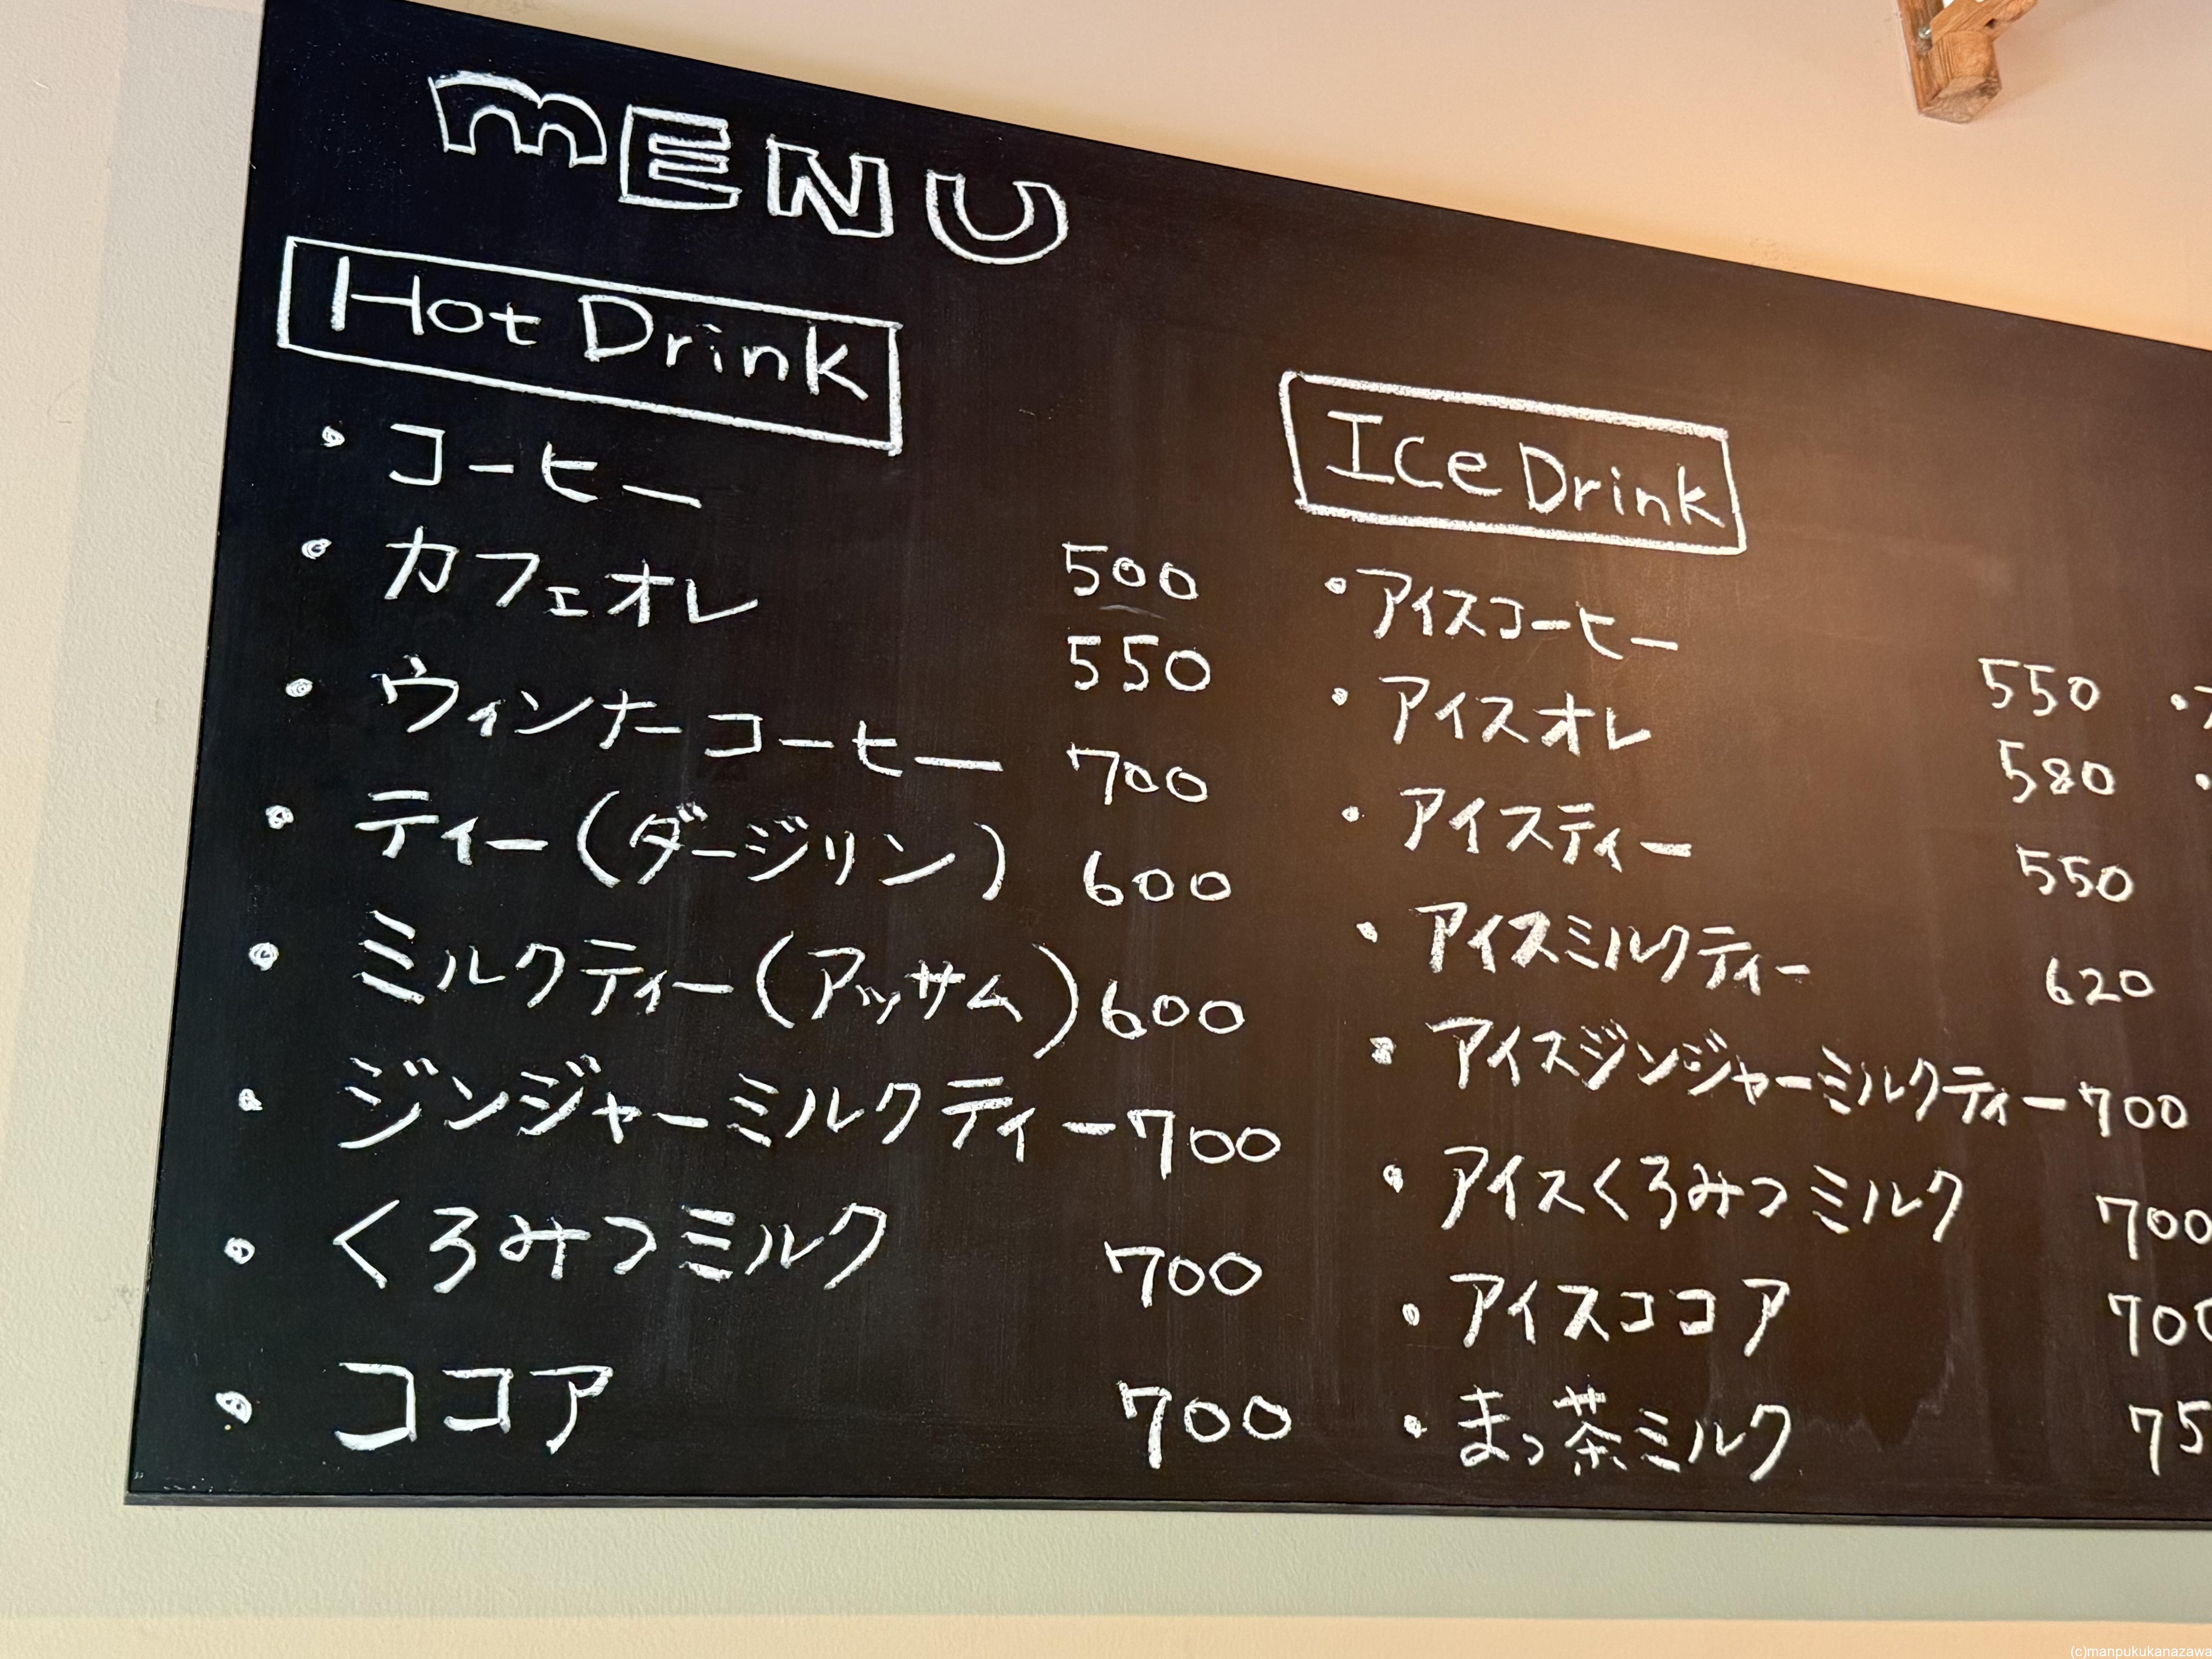 MENU
Hot Drink
・コーヒー 500
・カフェオレ 550
・ウィンナーコーヒー 700
・ティー(ダージリン) 600
・ミルクティー(アッサム) 600
・ジンジャーミルクティー 700
・くろみつミルク 700
・ココア 700
Ice Drink
・アイスコーヒー 550
・アイスオレ 580
・アイスティー 550
・アイスミルクティー 620
・アイスジンジャーミルクティー 700
・アイスくろみつミルク 700
・アイスココア 700
・まっ茶ミルク 75
(c)manpukukanazawa